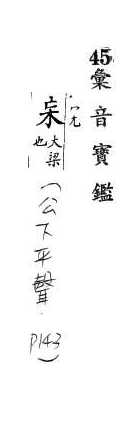 45彙音寶鑑
杗 大梁也
(公下平聲. P143)